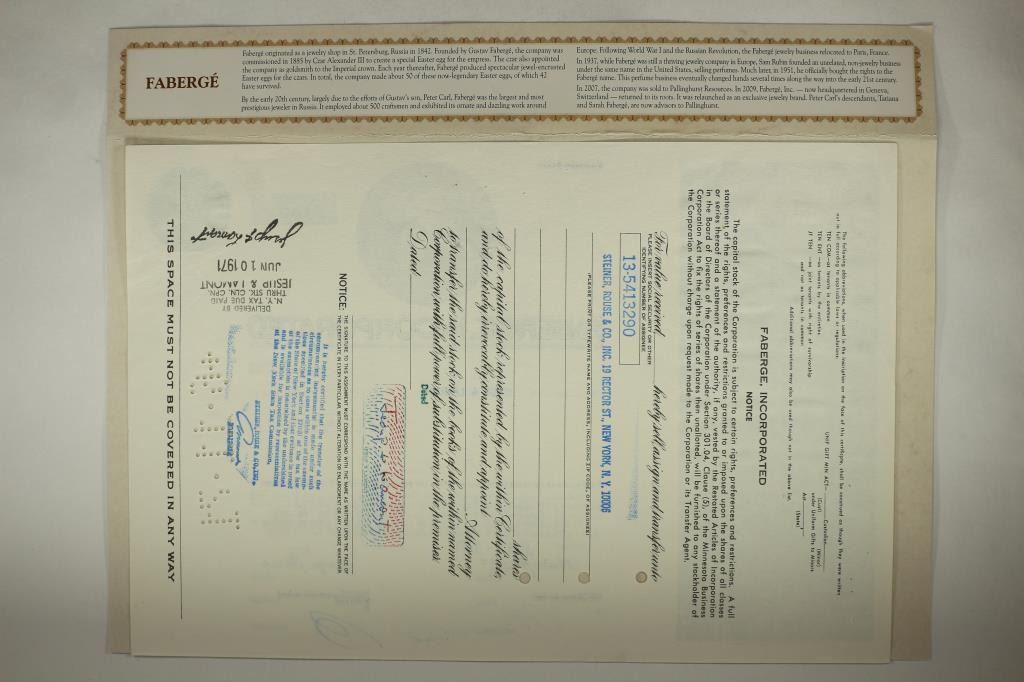 FABERGÉ
Fabergé originated as a jewelry shop in St. Petersburg, Russia in 1842. Founded by Gustav Fabergé, the company was
commissioned in 1885 by Czar Alexander III to create a special Easter egg for the empress. The czar also appointed
the company as goldsmith to the Imperial crown. Each year thereafter, Fabergé produced spectacular jewel-encrusted
Easter eggs for the czars. In total, the company made about 50 of these now-legendary Easter eggs, of which 42
have survived.
By the early 20th century, largely due to the efforts of Gustav's son, Peter Carl, Fabergé was the largest and most
prestigious jeweler in Russia. It employed about 500 craftsmen and exhibited its ornate and dazzling work around
Europe. Following World War I and the Russian Revolution, the Fabergé jewelry business relocated to Paris, France.
In 1937, while Fabergé was still a thriving jewelry company in Europe, Sam Rubin founded an unrelated, non-jewelry business
under the same name in the United States, selling perfumes. Much later, in 1951, he officially bought the rights to the
Fabergé name. This perfume business eventually changed hands several times along the way into the early 21st century.
In 2007, the company was sold to Pallinghurst Resources. In 2009, Fabergé, Inc. — now headquartered in Geneva,
Switzerland — returned to its roots. It was relaunched as an exclusive jewelry brand. Peter Carl's descendants, Tatiana
and Sarah Fabergé, are now advisors to Pallinghurst.
The following abbreviations, when used in the inscription on the face of this certificate, shall be construed as though they were written
out in full according to applicable laws or regulations:
TEN COM—as tenants in common
TEN ENT —as tenants by the entireties
JT TEN —as joint tenants with right of survivorship
and not as tenants in common
UNIF GIFT MIN ACT— Custodian
(Cust) (Minor)
under Uniform Gifts to Minors
Act
(State)
Additional abbreviations may also be used though not in the above list.
FABERGE, INCORPORATED
NOTICE
The capital stock of the Corporation is subject to certain rights, preferences and restrictions. A full
statement of the rights, preferences and restrictions granted to or imposed upon the shares of all classes
or series thereof and a statement of the authority, if any, vested by the Restated Articles of Incorporation
in the Board of Directors of the Corporation under Section 301.04, Clause (5), of the Minnesota Business
Corporation Act to fix the rights of series of shares then unallotted, will be furnished to any stockholder of
the Corporation without charge upon request made to the Corporation or its Transfer Agent.
For value received, hereby sell, assign and transfer unto
PLEASE INSERT SOCIAL SECURITY OR OTHER
IDENTIFYING NUMBER OF ASSIGNEE
13-5413290
STEINER, ROUSE & CO., INC. 19 RECTOR ST. NEW YORK, N. Y. 10006
(PLEASE PRINT OR TYPEWRITE NAME AND ADDRESS, INCLUDING ZIP CODE, OF ASSIGNEE)
shares
of the capital stock represented by the within Certificate,
and do hereby irrevocably constitute and appoint
Attorney
to transfer the said stock on the books of the within named
Corporation with full power of substitution in the premises.
Dated
Dated
NOTICE: THE SIGNATURE TO THIS ASSIGNMENT MUST CORRESPOND WITH THE NAME AS WRITTEN UPON THE FACE OF
THE CERTIFICATE IN EVERY PARTICULAR, WITHOUT ALTERATION OR ENLARGEMENT OR ANY CHANGE WHATEVER.
DELIVERED BY
N.Y. TAX DUE PAID
THRU STK. CLN. CPN.
JESUP & LAMONT
JUN 10 1971
Jesup & Lamont
STEINER, ROUSE & CO., INC.
THIS SPACE MUST NOT BE COVERED IN ANY WAY